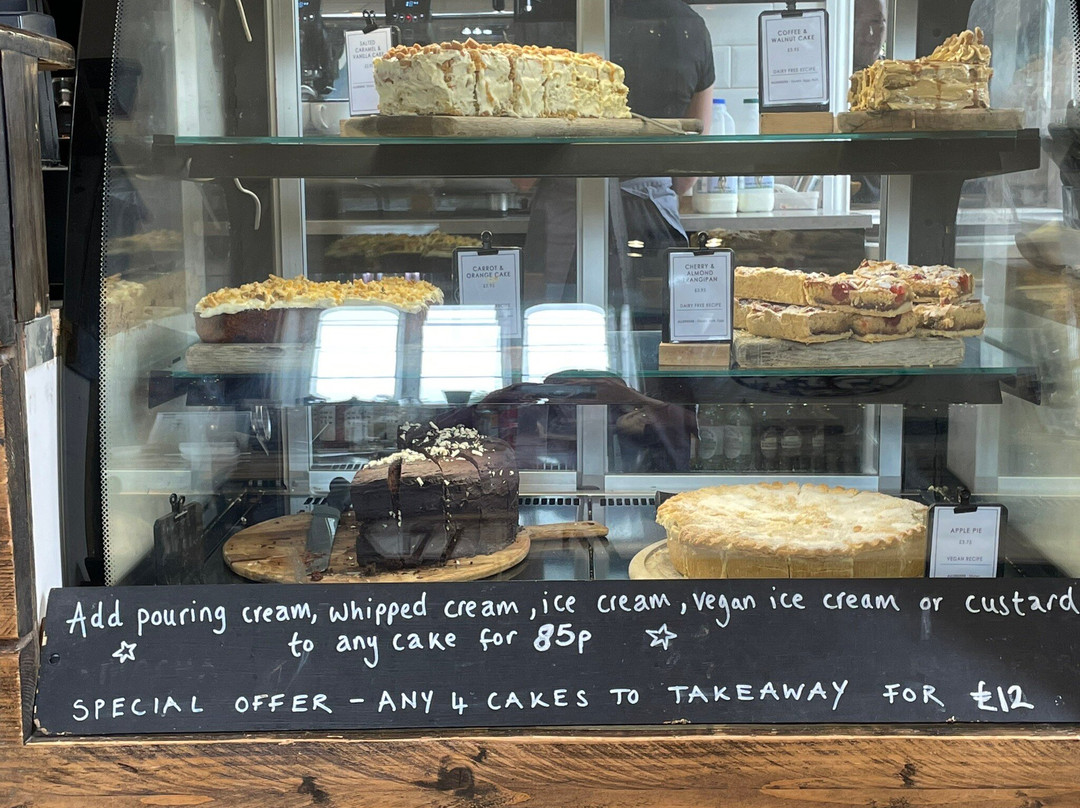 SALTED
CARAMEL &
VANILLA CAKE
COFFEE &
WALNUT CAKE
£3.95
DAIRY FREE RECIPE
CARROT &
ORANGE CAKE
CHERRY &
ALMOND
FRANGIPAN
£3.95
DAIRY FREE RECIPE
APPLE PIE
£3.75
VEGAN RECIPE
Add pouring cream, whipped cream, ice cream, vegan ice cream or custard
to any cake for 85p
SPECIAL OFFER - ANY 4 CAKES TO TAKEAWAY FOR £12